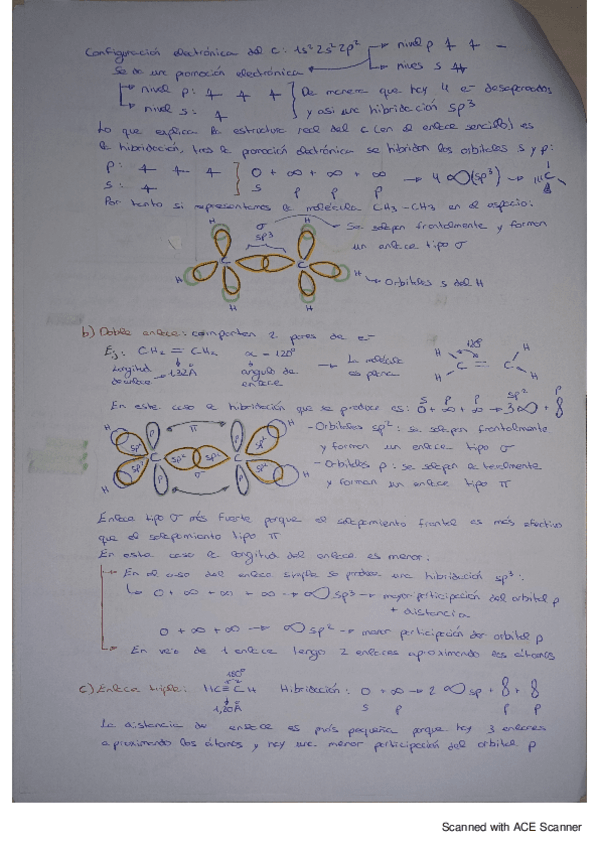 Configuración electrónica del C: 1s² 2s² 2p² → nivel p
Se da una promoción electrónica → nivel s
nivel p: De manera que hay 4 e⁻ desapareados
nivel s: y así una hibridación sp³
Lo que explica la estructura real del C (en el enlace sencillo) es
la hibridación, tras la promoción electrónica se hibridan los orbitales s y p:
p: 0 + ∞ + ∞ + ∞ → 4 ∞ (sp³) → C
s: s p p p
Por tanto si representamos la molécula CH₃-CH₃ en el espacio:
H σ H → Se solapan frontalmente y forman
sp³ un enlace tipo σ
C C
H H
H H → Orbitales s del H
b) Doble enlace: comparten 2 pares de e⁻
Ej: CH₂ = CH₂ α = 120º → La molécula es plana
longitud de enlace → 1,32 Å ángulo de enlace
120º
H C = C H
H H
En este caso la hibridación que se produce es: 0 + ∞ + ∞ → 3 ∞ + 8
s p p sp² p
H π H - Orbitales sp²: se solapan frontalmente
sp² p p sp² y forman un enlace tipo σ
C sp² sp² C - Orbitales p: se solapan lateralmente
sp² p σ p sp² y forman un enlace tipo π
H H
Enlace tipo σ más fuerte porque el solapamiento frontal es más efectivo
que el solapamiento tipo π
En este caso la longitud del enlace es menor:
→ En el caso del enlace simple se produce una hibridación sp³:
↳ 0 + ∞ + ∞ + ∞ → ∞ sp³ → mayor participación del orbital p
+ distancia
0 + ∞ + ∞ → ∞ sp² → menor participación del orbital p
→ En vez de 1 enlace tengo 2 enlaces aproximando los átomos
180º
c) Enlace triple: HC≡CH Hibridación: 0 + ∞ → 2 ∞ sp + 8 + 8
1,20 Å s p p p
La distancia de enlace es más pequeña porque hay 3 enlaces
aproximando los átomos y hay una menor participación del orbital p
Scanned with ACE Scanner